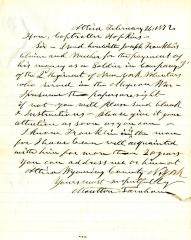 Attica February 26 1872
Hon. Comptroller Hopkins
Sir - I send herewith Joseph Franklin's
Claim and Voucher for the payment of
his money as a Soldier in Company J
of the 2d Regiment of New York Volunteers
who served in the Mexican War -
I presume the papers right
if not - you will please send blank
& instructions - Please give it your
attention as soon as you can -
I know Franklin is the man
for I have been well acquainted
with him for more than 20 years
You can address me or him at
Attica Wyoming County N York
Yours most respectfully
Moulton Farnham